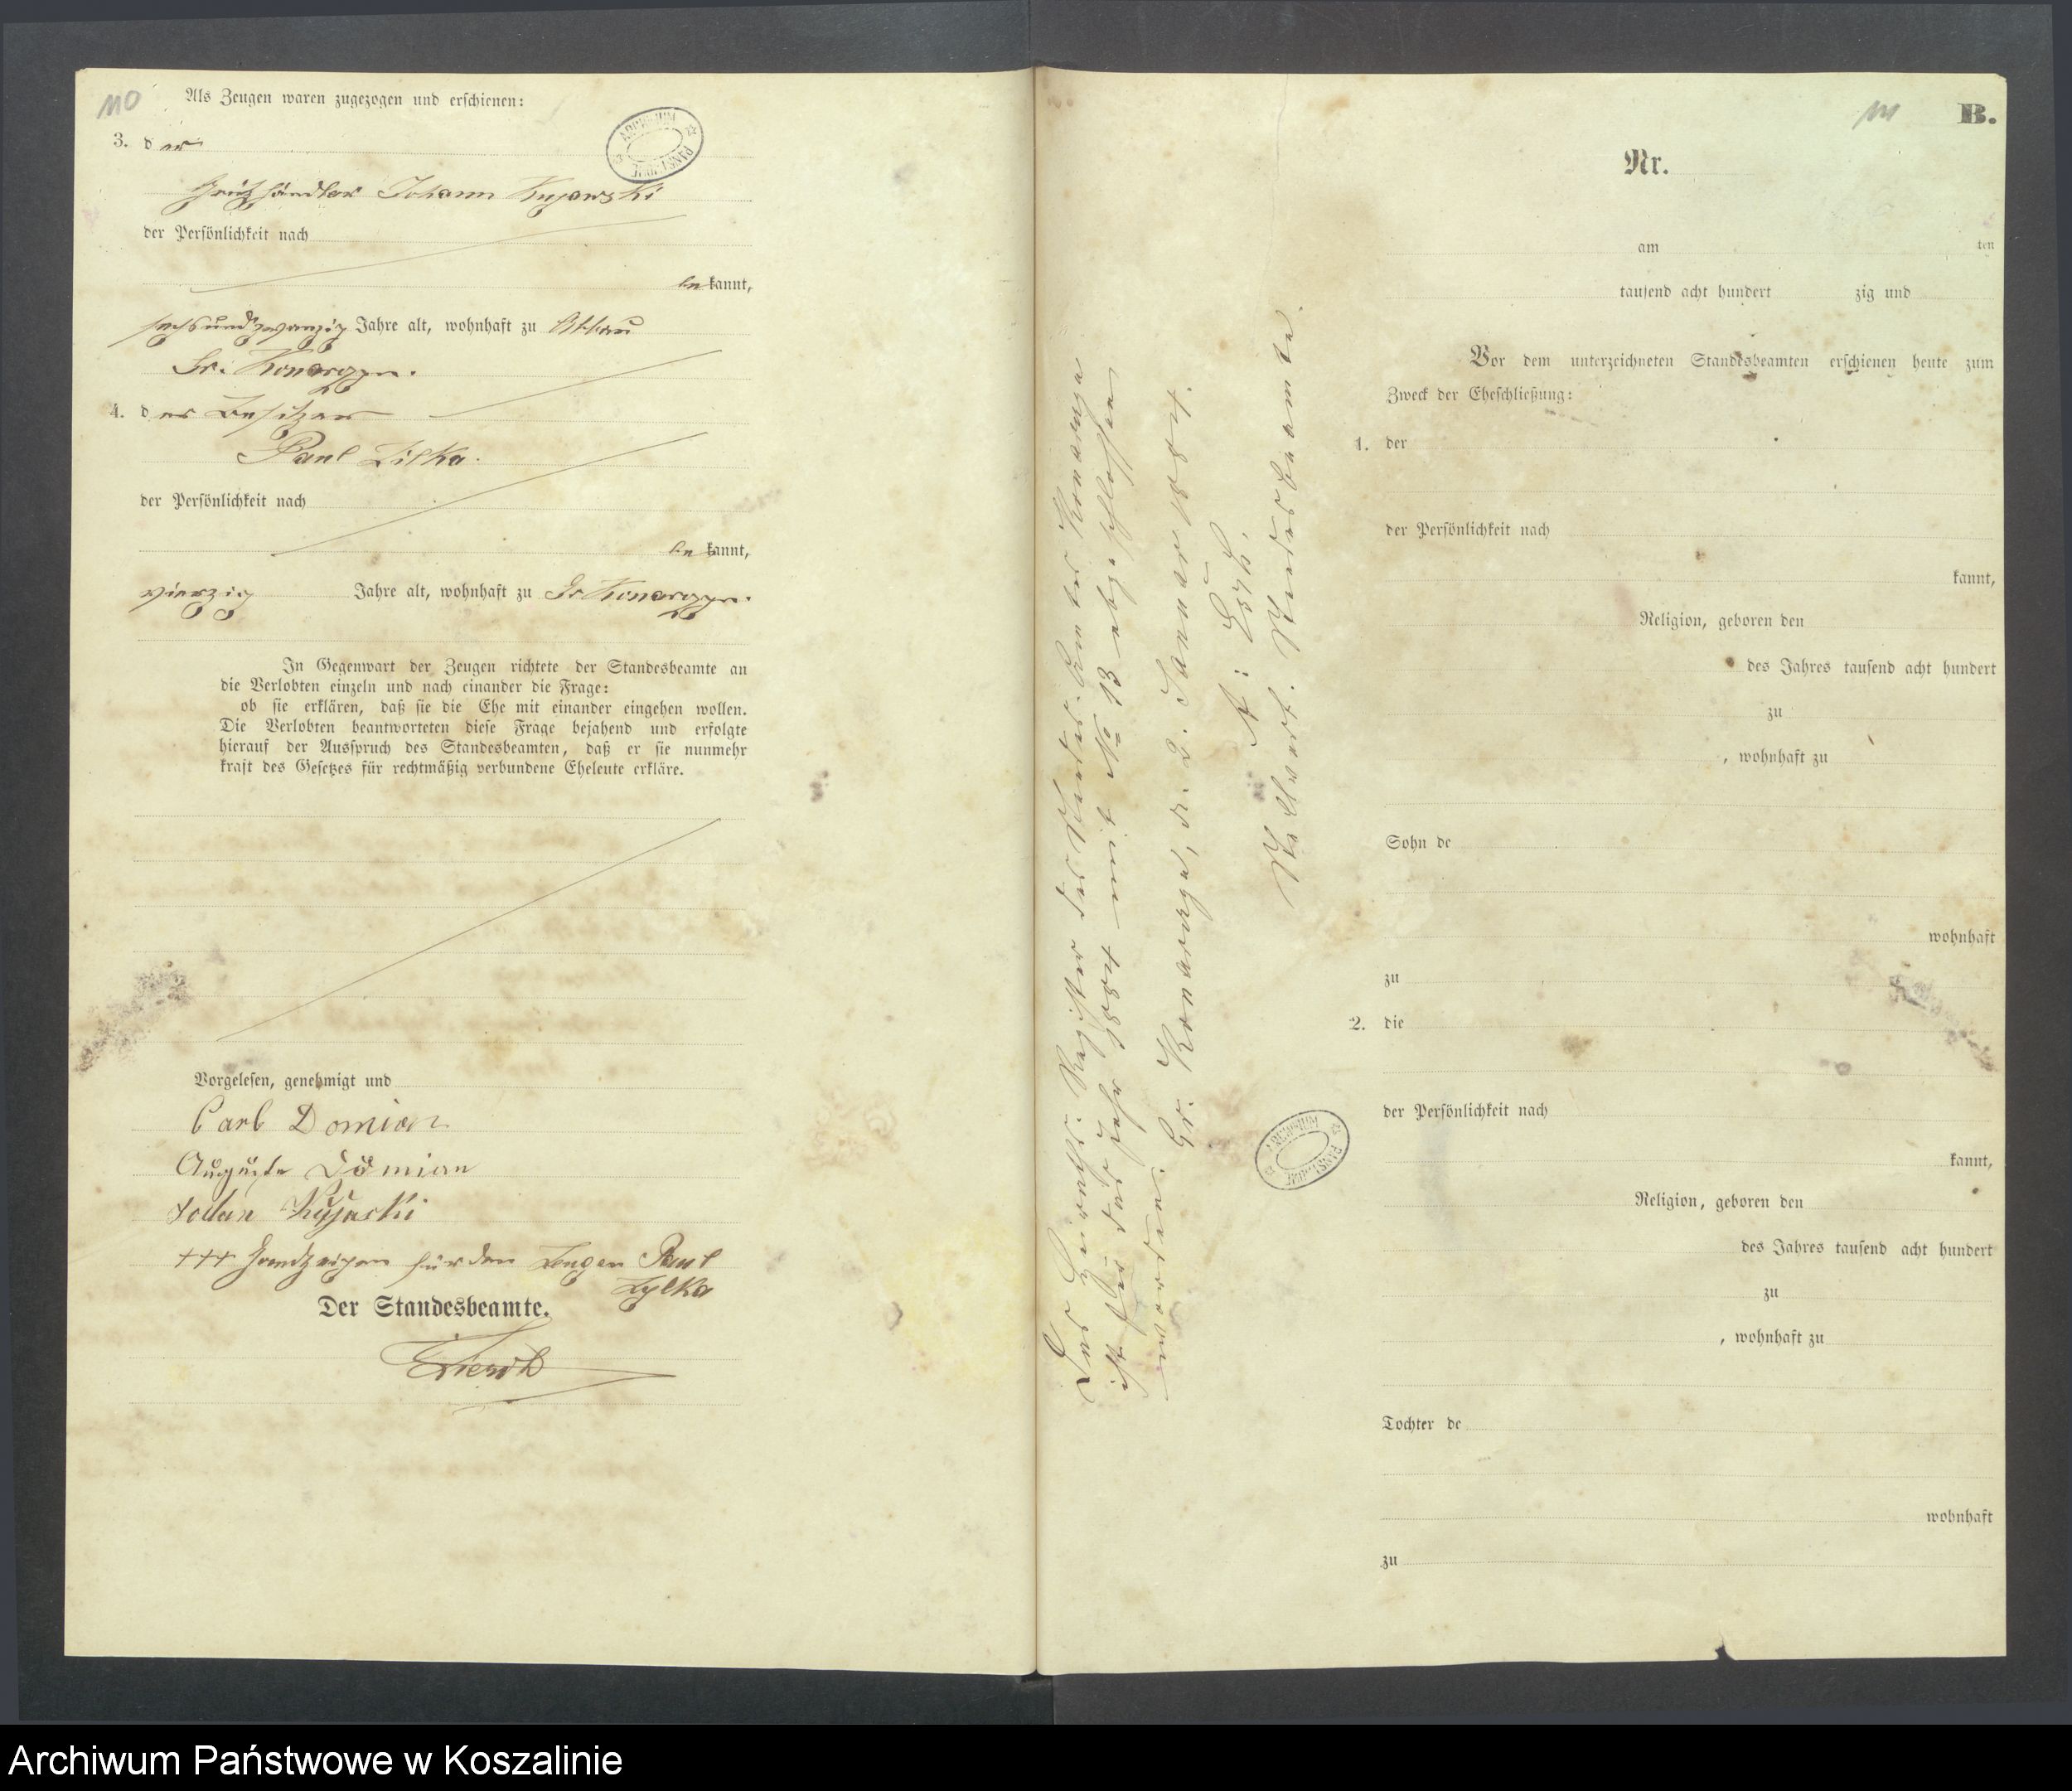 110
Als Zeugen waren zugezogen und erschienen:
3. der
Johann Kujawski
der Persönlichkeit nach
bekannt,
sechsundzwanzig Jahre alt, wohnhaft zu Abbau
Gr: Konarczyn.
4. der Besitzer
Paul Zilka.
der Persönlichkeit nach
bekannt,
vierzig Jahre alt, wohnhaft zu Gr Konarczyn.
In Gegenwart der Zeugen richtete der Standesbeamte an
die Verlobten einzeln und nach einander die Frage:
ob sie erklären, daß sie die Ehe mit einander eingehen wollen.
Die Verlobten beantworteten diese Frage bejahend und erfolgte
hierauf der Ausspruch des Standesbeamten, daß er sie nunmehr
kraft des Gesetzes für rechtmäßig verbundene Eheleute erkläre.
Vorgelesen, genehmigt und
Carl Domian
Auguste Domian
Kujaski
+++ Handzeichen für den Zeugen Paul
Zylka
Der Standesbeamte.
ARCHIWUM PAŃSTWOWE
Das Heiraths: Register des Standes: Amtes Konarzyn
ist für das Jahr 1884 mit No 13 abgeschlossen
worden.
Gr. Konarzyn, d. 2. Januar 1884.
Stellvert. Standesbeamte.
ARCHIWUM PAŃSTWOWE
111
B.
Nr.
am ten
tausend acht hundert zig und
Vor dem unterzeichneten Standesbeamten erschienen heute zum
Zweck der Eheschließung:
1. der
der Persönlichkeit nach
kannt,
Religion, geboren den
des Jahres tausend acht hundert
zu
, wohnhaft zu
Sohn de
wohnhaft
zu
2. die
der Persönlichkeit nach
kannt,
Religion, geboren den
des Jahres tausend acht hundert
zu
, wohnhaft zu
Tochter de
wohnhaft
zu
Archiwum Państwowe w Koszalinie